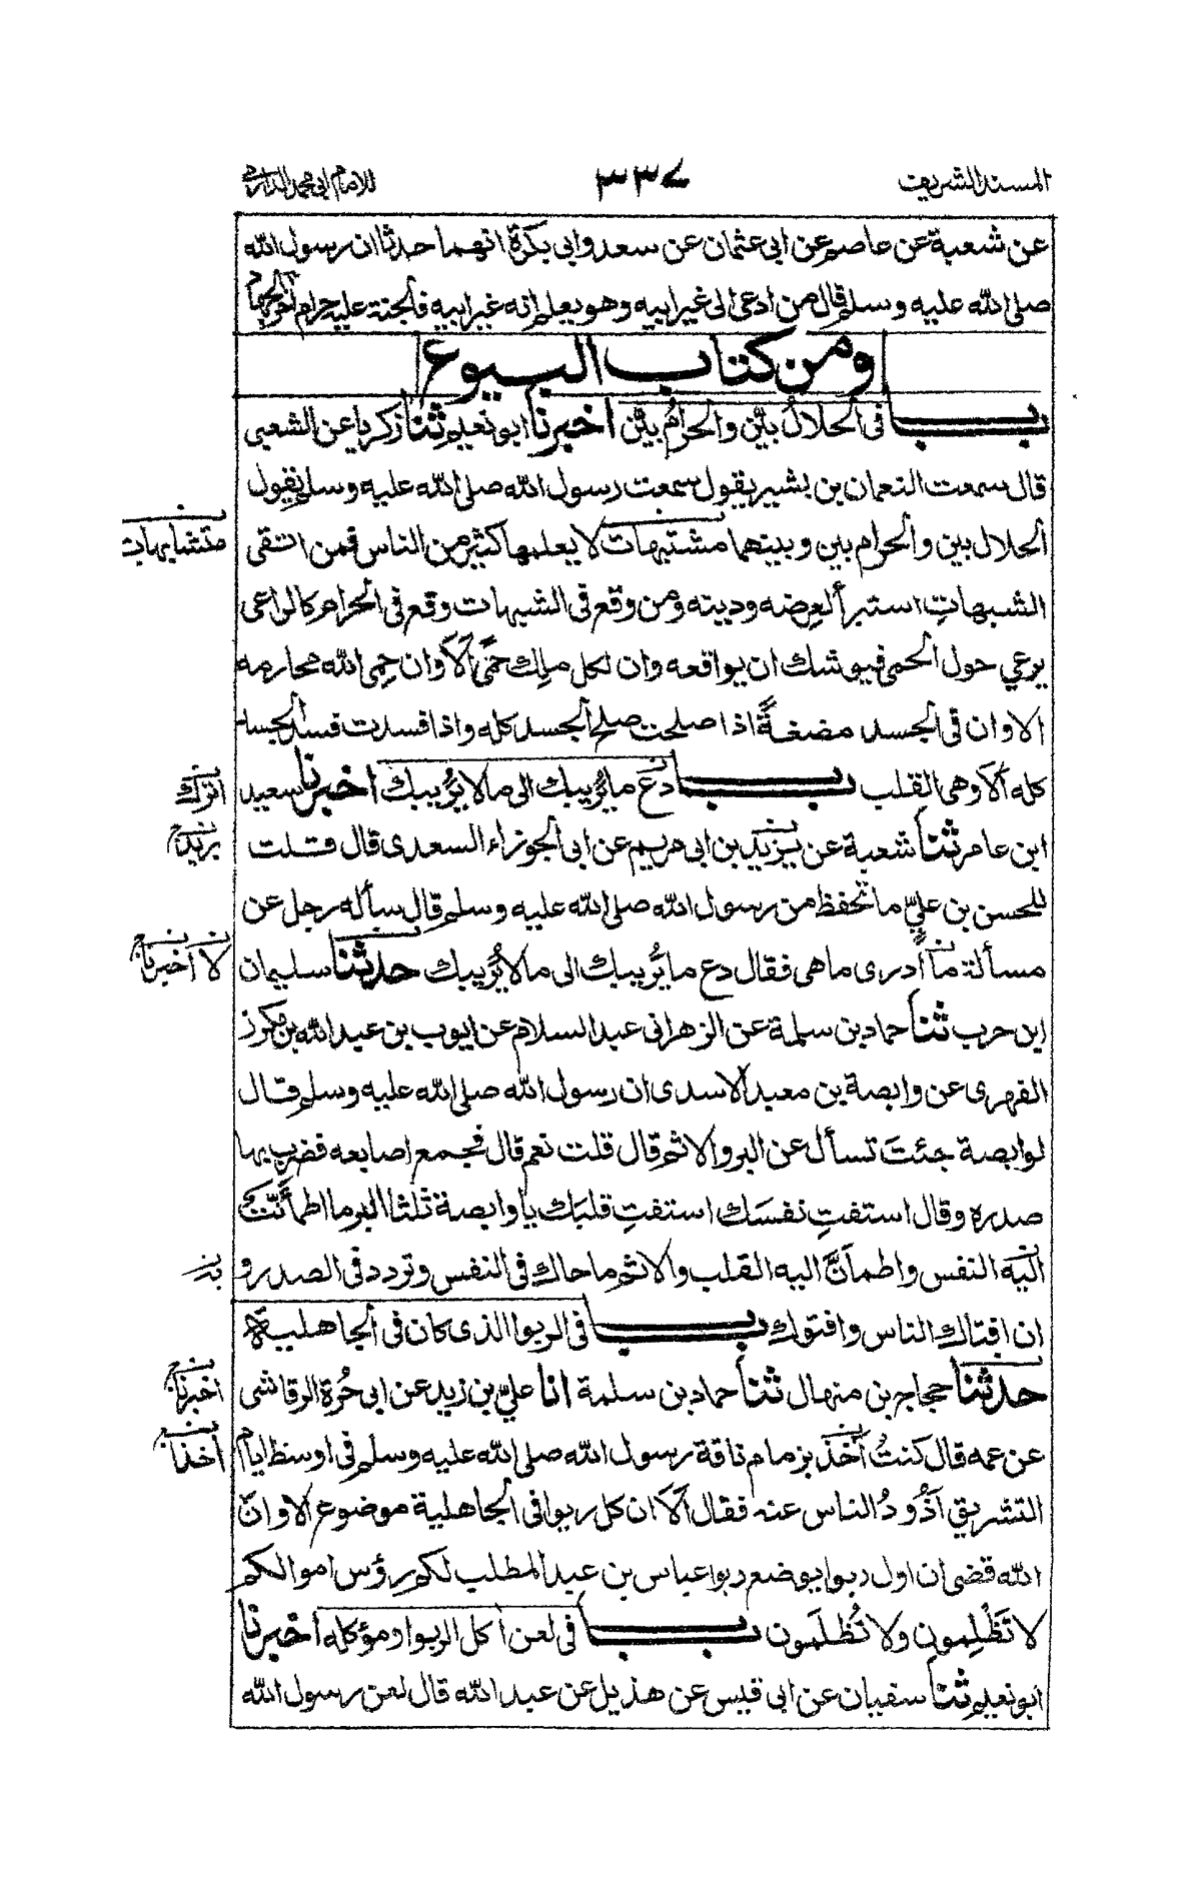 المسند الشريف ٣٣٧ للامام ابي محمد الدارمي
عن شعبة عن عاصم عن ابي عثمان عن سعد وابي بكرة انهما حدثا ان رسول الله
صلى الله عليه وسلم قال من ادعى الى غير ابيه وهو يعلم انه غير ابيه فالجنة عليه حرام
ومن كتاب البيوع
باب فى الحلالُ بيّن والحرامُ بيّن اخبرنا ابو نعيم ثنا زكريا عن الشعبى
قال سمعت النعمان بن بشير يقول سمعت رسول الله صلى الله عليه وسلم يقول
الحلال بين والحرام بين وبينهما مشتبهات لا يعلمها كثير من الناس فمن اتقى
متشابهات
الشبهاتِ استبرأ لعِرضه ودينه ومن وقع فى الشبهات وقع فى الحرام كالراعى
يرعي حول الحمى فيوشك ان يواقعه وان لكل ملِك حمًى ألَا وان حِمى الله محارمه
الا وان فى الجسد مضغةً اذا صلحت صلح الجسد كله واذا فسدت فسد الجسد
كله ألَا وهى القلب باب دَع ما يُريبك الى ما لا يُريبك اخبرنا سعيد
اترك
ابن عامر ثنا شعبة عن يزيد بن ابى مريم عن ابى الجوزاء السعدى قال قلت
بريد
للحسن بن عليّ ما تحفظ من رسول الله صلى الله عليه وسلم قال سأله رجل عن
مسألة ما أدرى ما هى فقال دع ما يُريبك الى ما لا يُريبك حدثنا سليمان
لا اخبرنا
ابن حرب ثنا حماد بن سلمة عن الزهرانى عبد السلام عن ايوب بن عبد الله بن مكرز
الفهرى عن وابصة بن معبد الاسدى ان رسول الله صلى الله عليه وسلم قال
لوابصة جئتَ تسأل عن البر والاثم قال قلت نعم قال فجمع اصابعه فضرب بها
صدره وقال استفتِ نفسَك استفتِ قلبَك يا وابصة ثلثا البر ما اطمأنّت
اليه النفس واطمأنَّ اليه القلب والاثم ما حاك فى النفس وتردد فى الصدر و
ان افتاك الناس وافتوك باب فى الربوا الذى كان فى الجاهلية
حدثنا حجاج بن منهال ثنا حماد بن سلمة انا عليّ بن زيد عن ابى حُرة الرقاشى
اخبرنا
عن عمه قال كنتُ آخذ بزمام ناقة رسول الله صلى الله عليه وسلم فى اوسط ايام
اخذا
التشريق أذُودُ الناس عنه فقال ألَا ان كل ربوا فى الجاهلية موضوع الا وانّ
الله قضى ان اول ربوا يوضع ربوا عباس بن عبد المطلب لكم رؤس اموالكم
لا تَظْلِمون ولا تُظلَمون باب فى لعن أكل الربوا ومؤكله اخبرنا
ابو نعيم ثنا سفيان عن ابى قيس عن هذيل عن عبد الله قال لعن رسول الله